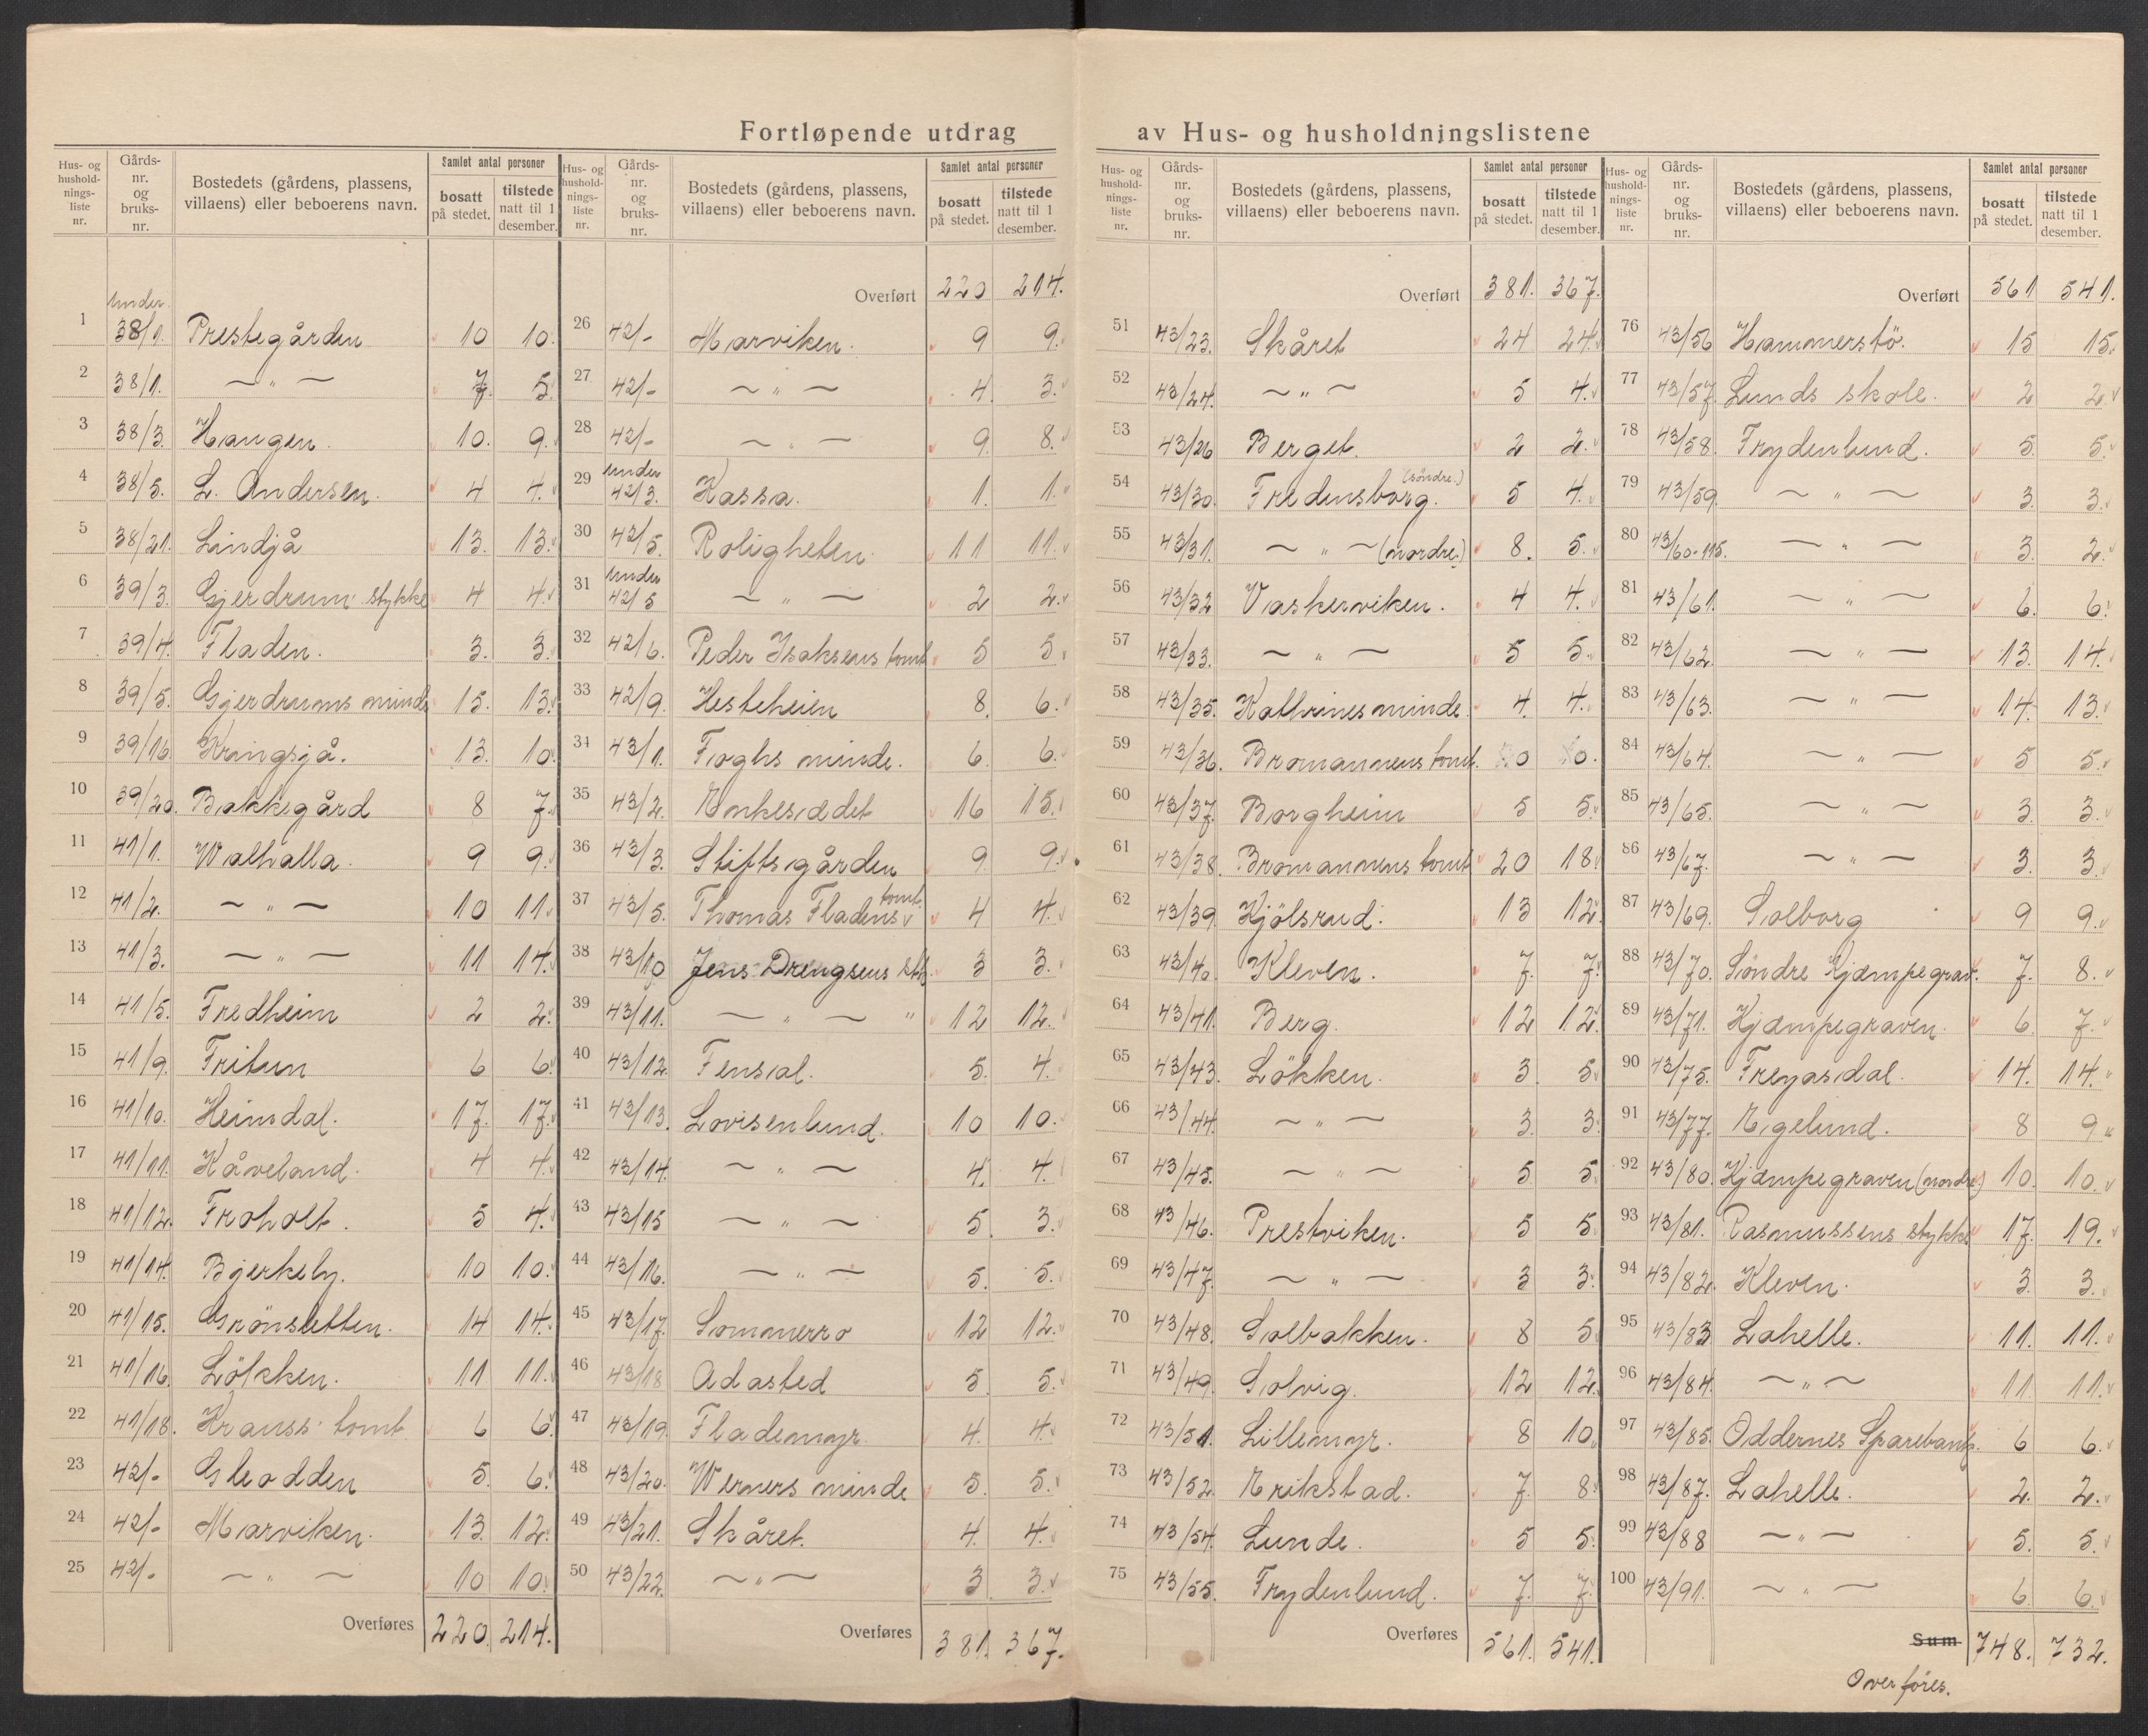 Fortløpende utdrag av Hus- og husholdningslistene
Hus- og husholdnings-liste nr. | Gårds-nr. og bruks-nr. | Bostedets (gårdens, plassens, villaens) eller beboerens navn. | Samlet antal personer bosatt på stedet. | tilstede natt til 1 desember.
1 under 38/1. Prestegården 10 10.
2 38/1. — " — 7. 5.
3 38/3. Haugen. 10. 9.
4 38/5. L. Andersen. 4 4.
5 38/21. Lindjå 13. 13.
6 39/3. Gjerdrum stykke 4 4.
7 39/4. Fladen. 3. 3.
8 39/5. Gjerdrums minde 15. 13.
9 39/16. Kringsjå. 13. 10.
10 39/20. Bakkegård 8 7.
11 41/1. Walhalla. 9 9.
12 41/2. — " — 10 11.
13 41/3. — " — 11 14.
14 41/5. Fredheim 2 2.
15 41/9. Fritun 6 6.
16 41/10. Heimdal. 17. 17.
17 41/11. Kåveland. 4 4.
18 41/12. Froholt. 5 4.
19 41/14. Bjerkely. 10 10.
20 41/15. Grönsletten. 14 14.
21 41/16. Lökken. 11 11.
22 41/18. Krauss' tomt. 6 6.
23 42/- Gleodden 5. 6.
24 42/- Marviken. 13. 12.
25 42/- — " — 10 10.
Overføres 220. 214.
Hus- og husholdnings-liste nr. | Gårds-nr. og bruks-nr. | Bostedets (gårdens, plassens, villaens) eller beboerens navn. | Samlet antal personer bosatt på stedet. | tilstede natt til 1 desember.
Overført 220 214.
26 42/- Marviken. 9 9.
27 42/- — " — 4. 3.
28 42/- — " — 9. 8.
29 under 42/3. Kassa. 1. 1.
30 42/5. Roligheten. 11 11.
31 under 42/5 — " — 2 2.
32 42/6. Peder Isaksens tomt 5 5
33 42/9. Hesteheien 8. 6.
34 43/1. Foghs minde. 6. 6.
35 43/2. Enkesædet 16 15.
36 43/3. Stiftsgården 9 9.
37 43/5. Thomas Fladens tomt. 4 4.
38 43/10 Jens Drengsens 3 3.
39 43/11. — " — " 12 12.
40 43/12. Fensal. 5. 4.
41 43/13. Lovisenlund. 10 10.
42 43/14. — " — 4. 4.
43 43/15 — " — 5. 3.
44 43/16. — " — 5. 5.
45 43/17. Sommerro 12 12.
46 43/18 Adasted 5. 5.
47 43/19. Flademyr. 4. 4.
48 43/20. Werners minde 5. 5.
49 43/21. Skåret. 4. 4.
50 43/22. — " — 3 3.
Overføres 381. 367.
Hus- og husholdnings-liste nr. | Gårds-nr. og bruks-nr. | Bostedets (gårdens, plassens, villaens) eller beboerens navn. | Samlet antal personer bosatt på stedet. | tilstede natt til 1 desember.
Overført 381. 367.
51 43/23. Skåret 24 24.
52 43/24. — " — 5 4.
53 43/26 Berget. 2 2.
54 43/30. Fredensborg. (söndre.) 5 4.
55 43/31. — " — (nordre.) 8. 5.
56 43/32 Vaskerviken. 4 4.
57 43/33. — " — 5 5.
58 43/35. Kathrinesminde. 4. 4.
59 43/36. Bromannens tomt. 0 0.
60 43/37. Borgheim 5 5.
61 43/38. Bromannens tomt 20 18.
62 43/39. Kjölsrud. 13 12.
63 43/40. Kleven. 7. 7.
64 43/41. Berg. 12 12.
65 43/43. Lökken. 3. 5
66 43/44. — " — 3. 3.
67 43/45. — " — 5 5.
68 43/46. Prestviken. 5 5.
69 43/47. — " — 3 3.
70 43/48. Solbakken. 8 5.
71 43/49. Solvig. 12 12.
72 43/51. Lillemyr. 8 10.
73 43/52. Erikstad. 7. 8.
74 43/54. Lunde. 5 5.
75 43/55. Frydenlund. 7. 7.
Overføres 561. 541.
Hus- og husholdnings-liste nr. | Gårds-nr. og bruks-nr. | Bostedets (gårdens, plassens, villaens) eller beboerens navn. | Samlet antal personer bosatt på stedet. | tilstede natt til 1 desember.
Overført 561 541.
76 43/56 Hammerstö. 15 15.
77 43/57. Lunds skole. 2 2.
78 43/58. Frydenlund. 5. 5.
79 43/59. — " — 3. 3.
80 43/60-115. — " — 3. 2.
81 43/61. — " — 6. 6.
82 43/62. — " — 13. 14.
83 43/63. — " — 14. 13.
84 43/64. — " — 5 5.
85 43/65. — " — 3. 3.
86 43/67. — " — 3. 3.
87 43/69. Solborg 9 9.
88 43/70. Söndre Kjæmpegrav. 7. 8.
89 43/71. Kjæmpegraven. 6. 7.
90 43/75. Freyasdal. 14. 14.
91 43/77. Egelund. 8 9.
92 43/80. Kjæmpegraven (nordre) 10. 10.
93 43/81. Rasmussens stykke 17. 19.
94 43/82. Kleven. 3. 3.
95 43/83 Lahelle. 11. 11.
96 43/84. — " — 11. 11.
97 43/85. Oddernes Sparebank. 6 6.
98 43/87. Lahelle. 2. 2.
99 43/88 — " — 5. 5.
100 43/91. — " — 6. 6.
Sum 748. 732.
Overføres.